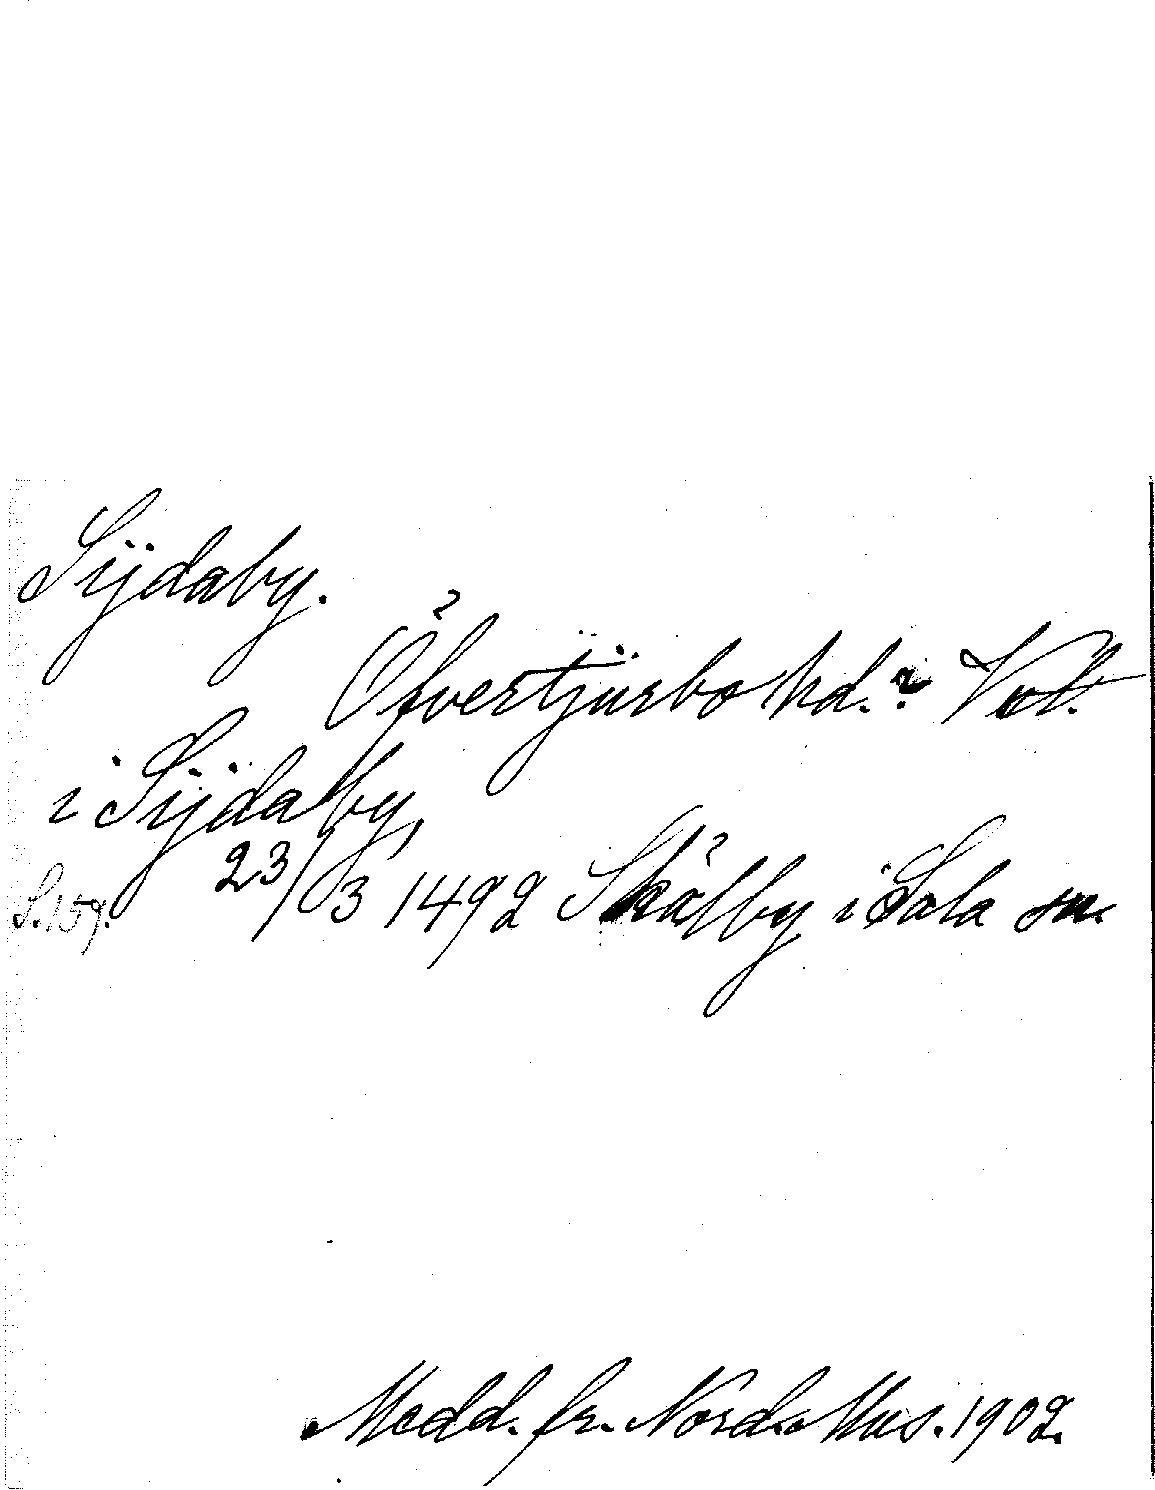 Sijdaby.
Öfvertjurbo hd.? Vstl.
i Sijdaby,
S.159. 23/3 1492 Skålby i Sala sn.
Medd. fr. Nord. Mus. 1902.